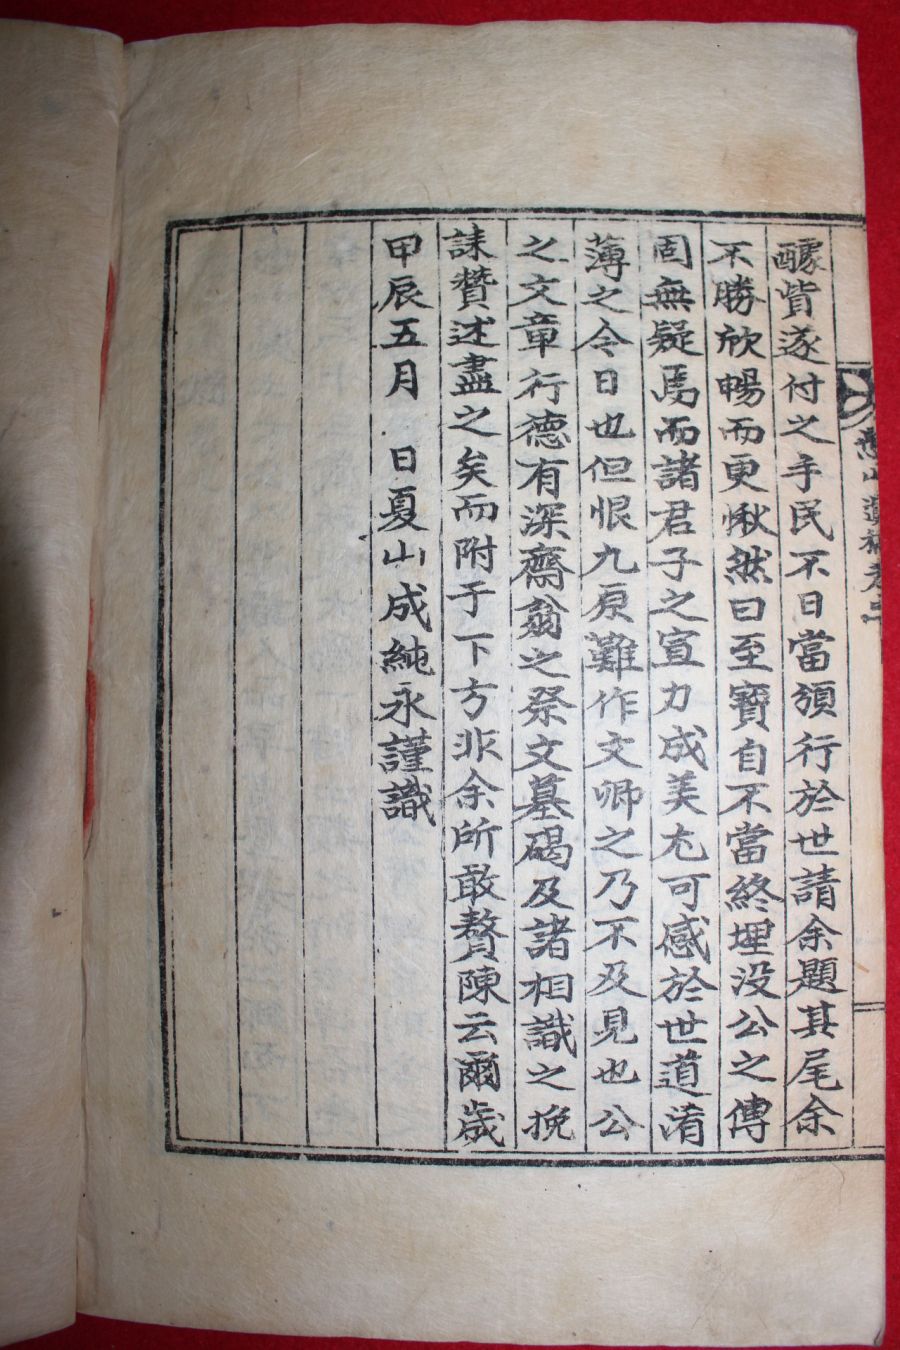 醵貲遂付之手民不日當頒行於世請余題其尾余
不勝欣暢而更愀然曰至寶自不當終埋没公之傳
固無疑焉而諸君子之宣力成美尤可感於世道淆
薄之今日也但恨九原難作文卿之乃不及見也公
之文章行德有深齋翁之祭文墓碣及諸相識之挽
誄贊述盡之矣而附于下方非余所敢贅陳云爾歲
甲辰五月 日夏山成純永謹識
山遺稿卷之二